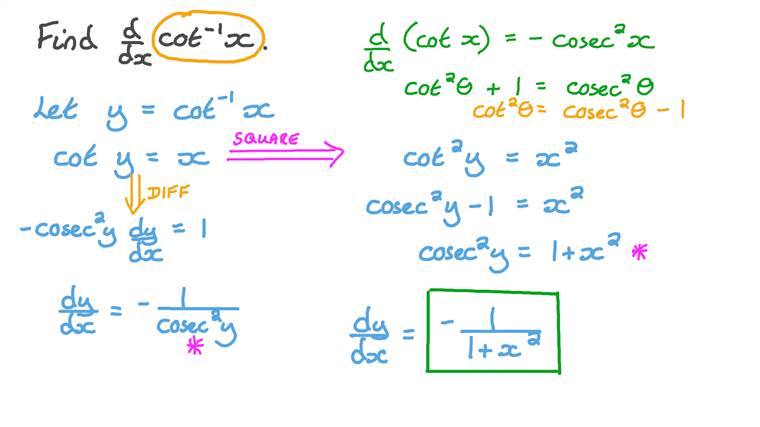 Find d/dx cot⁻¹x.
Let y = cot⁻¹x
cot y = x
SQUARE
DIFF
-cosec²y dy/dx = 1
dy/dx = - 1/cosec²y
*
d/dx (cot x) = - cosec²x
cot²θ + 1 = cosec²θ
cot²θ = cosec²θ - 1
cot²y = x²
cosec²y - 1 = x²
cosec²y = 1 + x² *
dy/dx = - 1/(1 + x²)